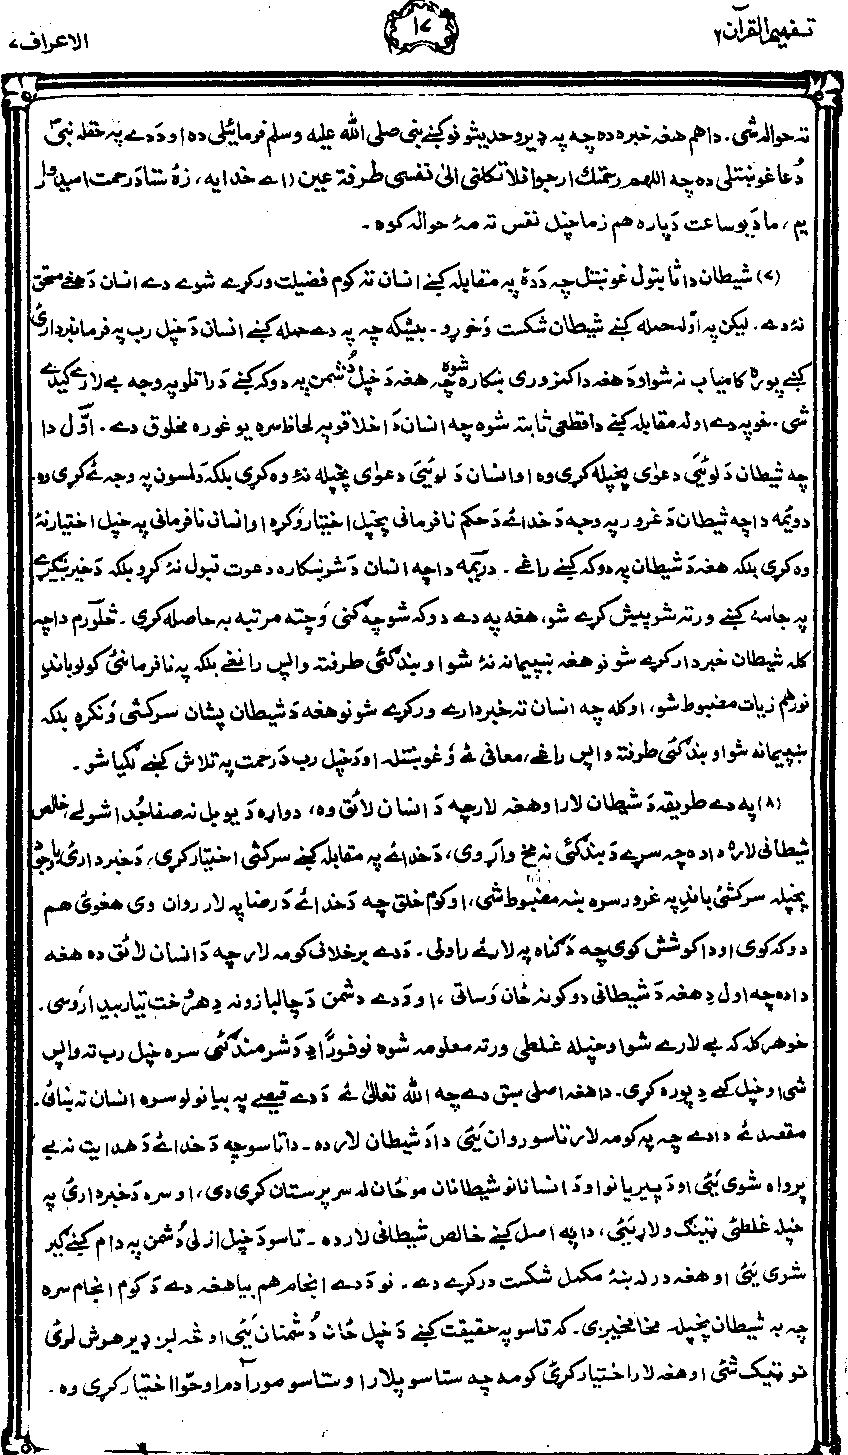 تفهيم القرآن ٢
١٧
الاعراف ٧
ته حواله شى. دا هم هغه خبره ده چه په ډيرو حديثو نو کښے نبى صلى الله عليه وسلم فرمائيلى ده او دَدے په خپله نبىؐ
دُعا غوښتلى ده چه اللهم رحمتك ارجوا فلا تكلنى الىٰ نفسى طرفة عين (اے خدايه، زۀ ستا دَ رحمت اميدوار
يم، ما دَ يو ساعت دَپاره هم زما خپل نفس ته مۀ حواله کوه۔
(٧) شيطان دا ثابتول غوښتل چه دَدۀ په مقابله کښے انسان ته کوم فضيلت ورکړے شوے دے انسان دَ هغے مستحق
نۀ دے. ليکن په اوله حمله کښے شيطان شکست وَخوړو۔ بيشکه چه په دے حمله کښے انسان دَ خپل رب په فرمانبردارىٔ
کښے پوره کامياب نہ شو او دَ هغه دا کمزورى ښکاره شوه چه هغه دَ خپل دُشمن په دوکه کښے دَ راتلو په وجه بے لارے کيدے
شى۔ خو په دے اوله مقابله کښے دا قطعى ثابته شوه چه انسان دَ اخلاقو په لحاظ سره يو غوره مخلوق دے۔ اوّل دا
چه شيطان دَ لوئىٔ دعوىٰ پخپله کړى وه او انسان دَ لوئىٔ دعوىٰ پخپله نۀ وه کړى بلکه دَ لمسون په وجه ئے کړى وه۔
دوئمه دا چه شيطان دَ غرور په وجه دَ خدائے دَ حکم نافرمانى پخپل اختيار وَکړه او انسان نافرمانى په خپل اختيار نۀ
وه کړى بلکه هغه دَ شيطان په دوکه کښے راغے۔ درئمه دا چه انسان دَ شر ښکاره دعوت قبول نۀ کړو بلکه دَ خير ښيګړے
په جامه کښے ورته شر پيش کړے شو، هغه په دے دوکه شو چه ګنى وَچته مرتبه به حاصله کړى۔ څلورم دا چه
کله شيطان خبردار کړے شو نو هغه ښپيمانه نۀ شو او بندګىٔ طرفته واپس رانغے بلکه په نافرمانىٔ کولو باندِ
نور هم زيات مضبوط شو، او کله چه انسان ته خبردارے ورکړے شو نو هغه دَ شيطان پشان سرکشى وَنکړه بلکه
ښپيمانه شو او بندګىٔ طرفته واپس راغے، معافى ئے وَغوښتله او دَ خپل رب دَ رحمت په تلاش کښے لګيا شو۔
(٨) په دے طريقه دَ شيطان لار او هغه لار چه دَ انسان لائق وه، دواړه دَ يو بل نه صفا جُدا شولے، خالص
شيطانى لاره دا ده چه سړے دَ بندګئى نه مخ واړوى، دَ خدائے په مقابله کښے سرکشى اختيار کړى، دَ خبردارىٔ باوجود
پخپله سرکشىٔ باندِ په غرور سره ښه مضبوط شى، او کوم خلق چه دَ خدائے دَ رضا په لار روان وى هغوىٔ هم
دوکه کوى او دا کوشش کوى چه دَ ګناه په لار ئے راولى. دَدے برخلاف کومه لار چه دَ انسان لائق ده هغه
دا ده چه اول دِ هغه دَ شيطانى دوکو نه ځان وَساتى، او دَدے دشمن دَ چالبازو نه دِ هر وخت تيار بيدار وَسى.
خو هر کله که بے لارے شو او خپله غلطى ورته معلومه شوه نو فوراً دِ دَ شرمندګئى سره خپل رب ته واپس
شى او خپل کمے دِ پوره کړى. دا هغه اصلى سبق دے چه الله تعالىٰ ئے دَدے قيصے په بيانولو سره انسان ته ښائى.
مقصد ئے دا دے چه په کومه لار تاسو روان يىٔ دا دَ شيطان لار ده۔ دا تاسو چه دَ خدائے دَ هدايت نه بے
پرواه شوى يىٔ او دَ پيريانو او دَ انسانانو شيطانان مو ځان له سرپرستان کړى دى، او سره دَ خبردارىٔ په
خپل غلطىٔ ټينګ ولاړ يىٔ، دا په اصل کښے خالص شيطانى لار ده۔ تاسو دَ خپل ازلى دُشمن په دام کښے ګير
شوى يىٔ او هغه درله ښه مکمل شکست درکړے دے۔ نو دَدے انجام هم بيا هغه دے دَ کوم انجام سره
چه به شيطان پخپله مخامخيږى. که تاسو په حقيقت کښے دَ خپل ځان دُشمنان نۀ يىٔ او څه لږ ډير هوش لرىٔ
نو ټيک شىٔ او هغه لار اختيار کړىٔ کومه چه ستاسو پلار او ستاسو مور آدم او حوّا اختيار کړى وه۔